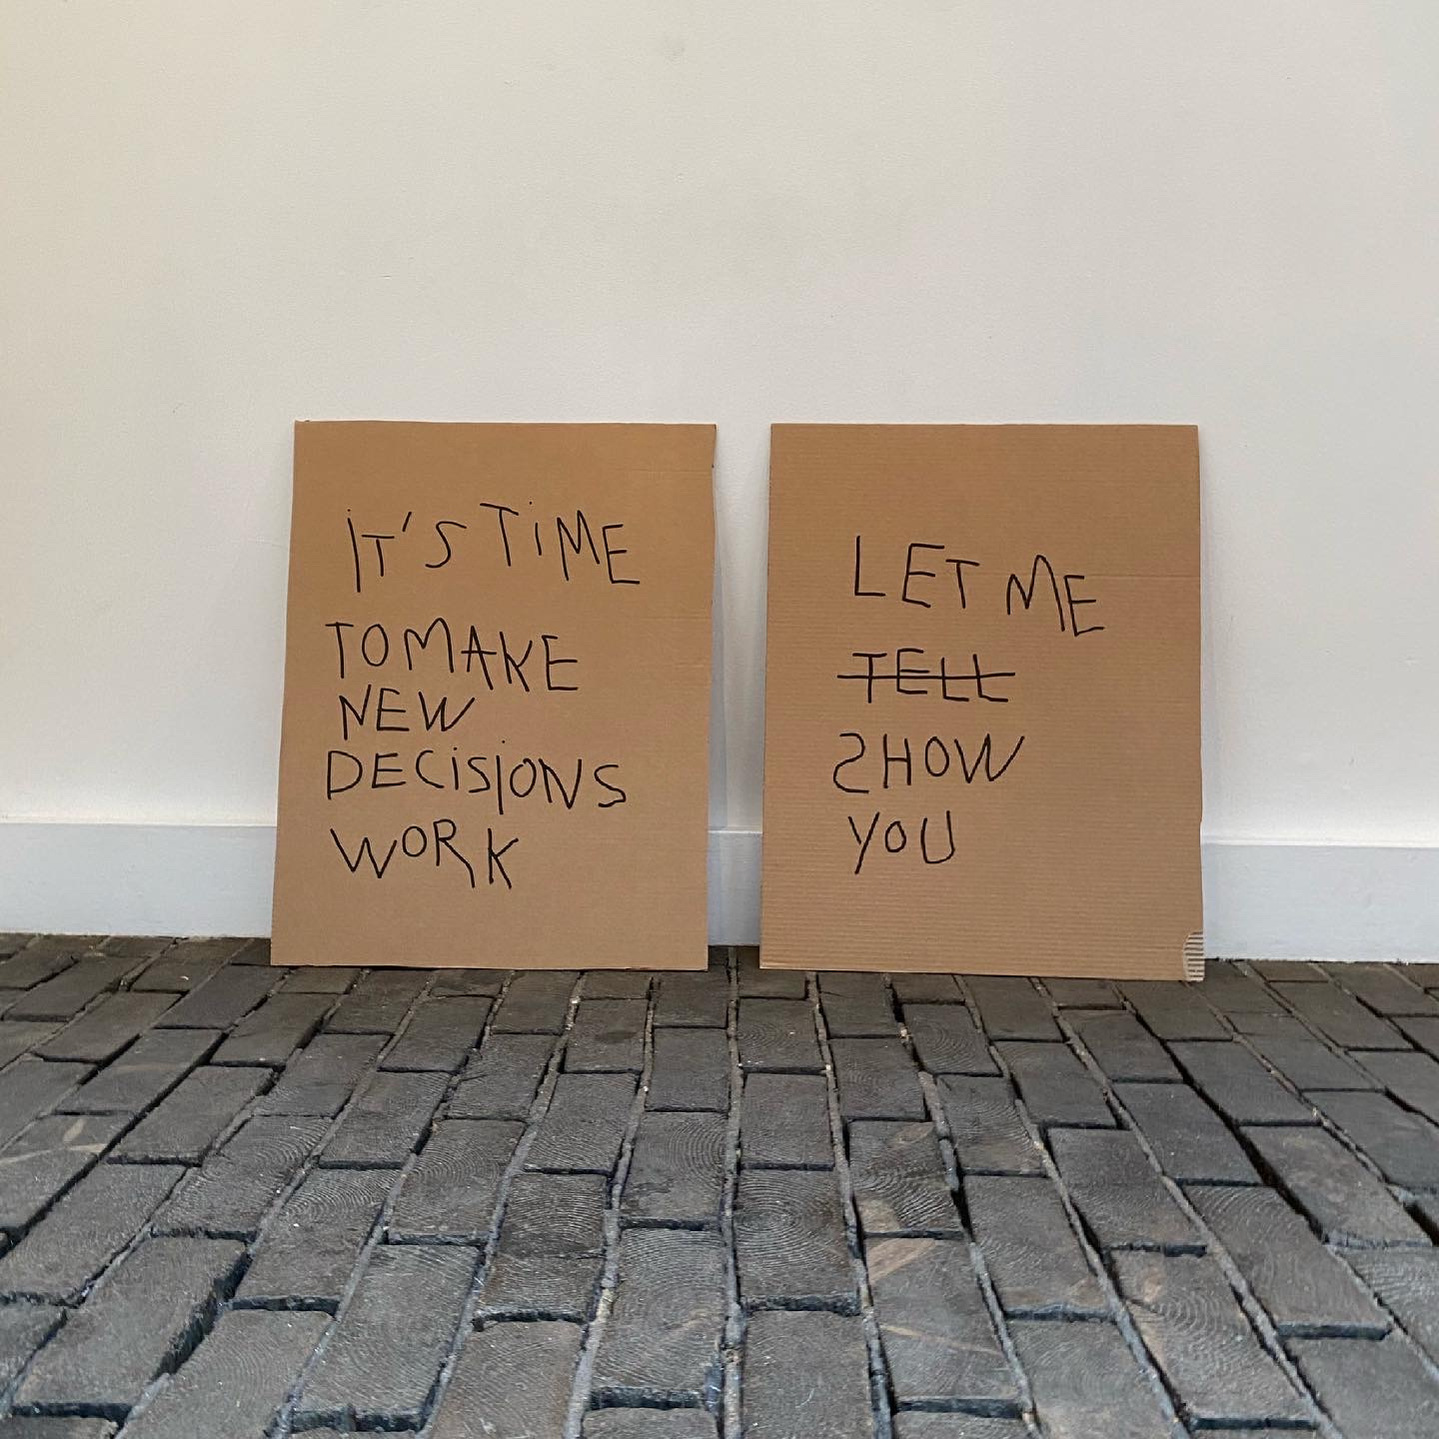 iT'S TiME
TO MAKE
NEW
DECiSiONS
WORK
LET ME
TELL
SHOW
YOU